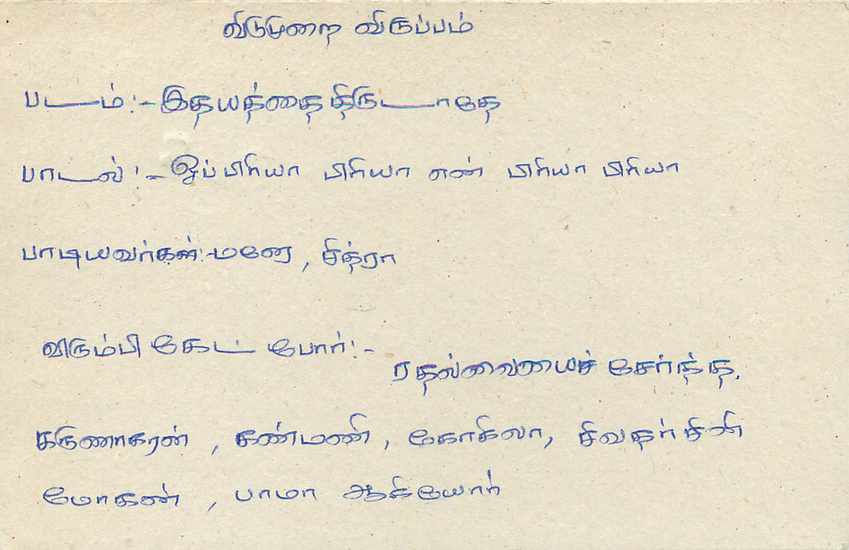 விடுமுறை விருப்பம்
படம்:- இதயத்தை திருடாதே
பாடல்:- ஓப்பிரியா பிரியா என் பிரியா பிரியா
பாடியவர்கள்:- மனோ, சித்ரா
விரும்பி கேட் போர்:-
ரதல்வையைச் சேர்ந்த,
கருணாகரன், கண்மணி, கோகிலா, சிவதர்சினி
மோகன், பாமா ஆகியோர்